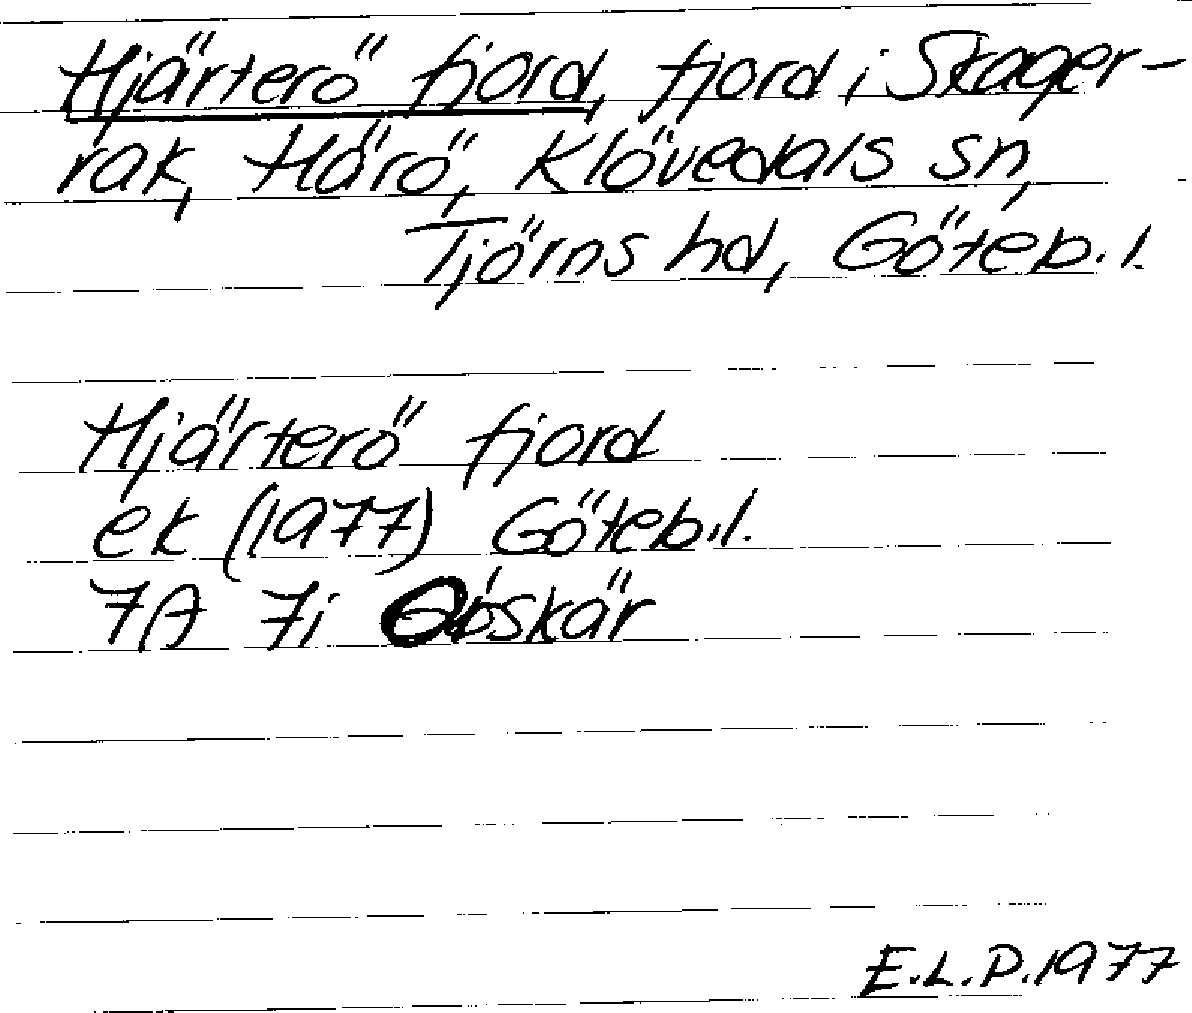 Hjärterö fjord, fjord i Skager-
rak, Härö, Klövedals sn,
Tjörns hd, Göteb.l.
Hjärterö fjord
ek (1977) Göteb.l.
7A 7i Åbskär
E.L.P. 1977